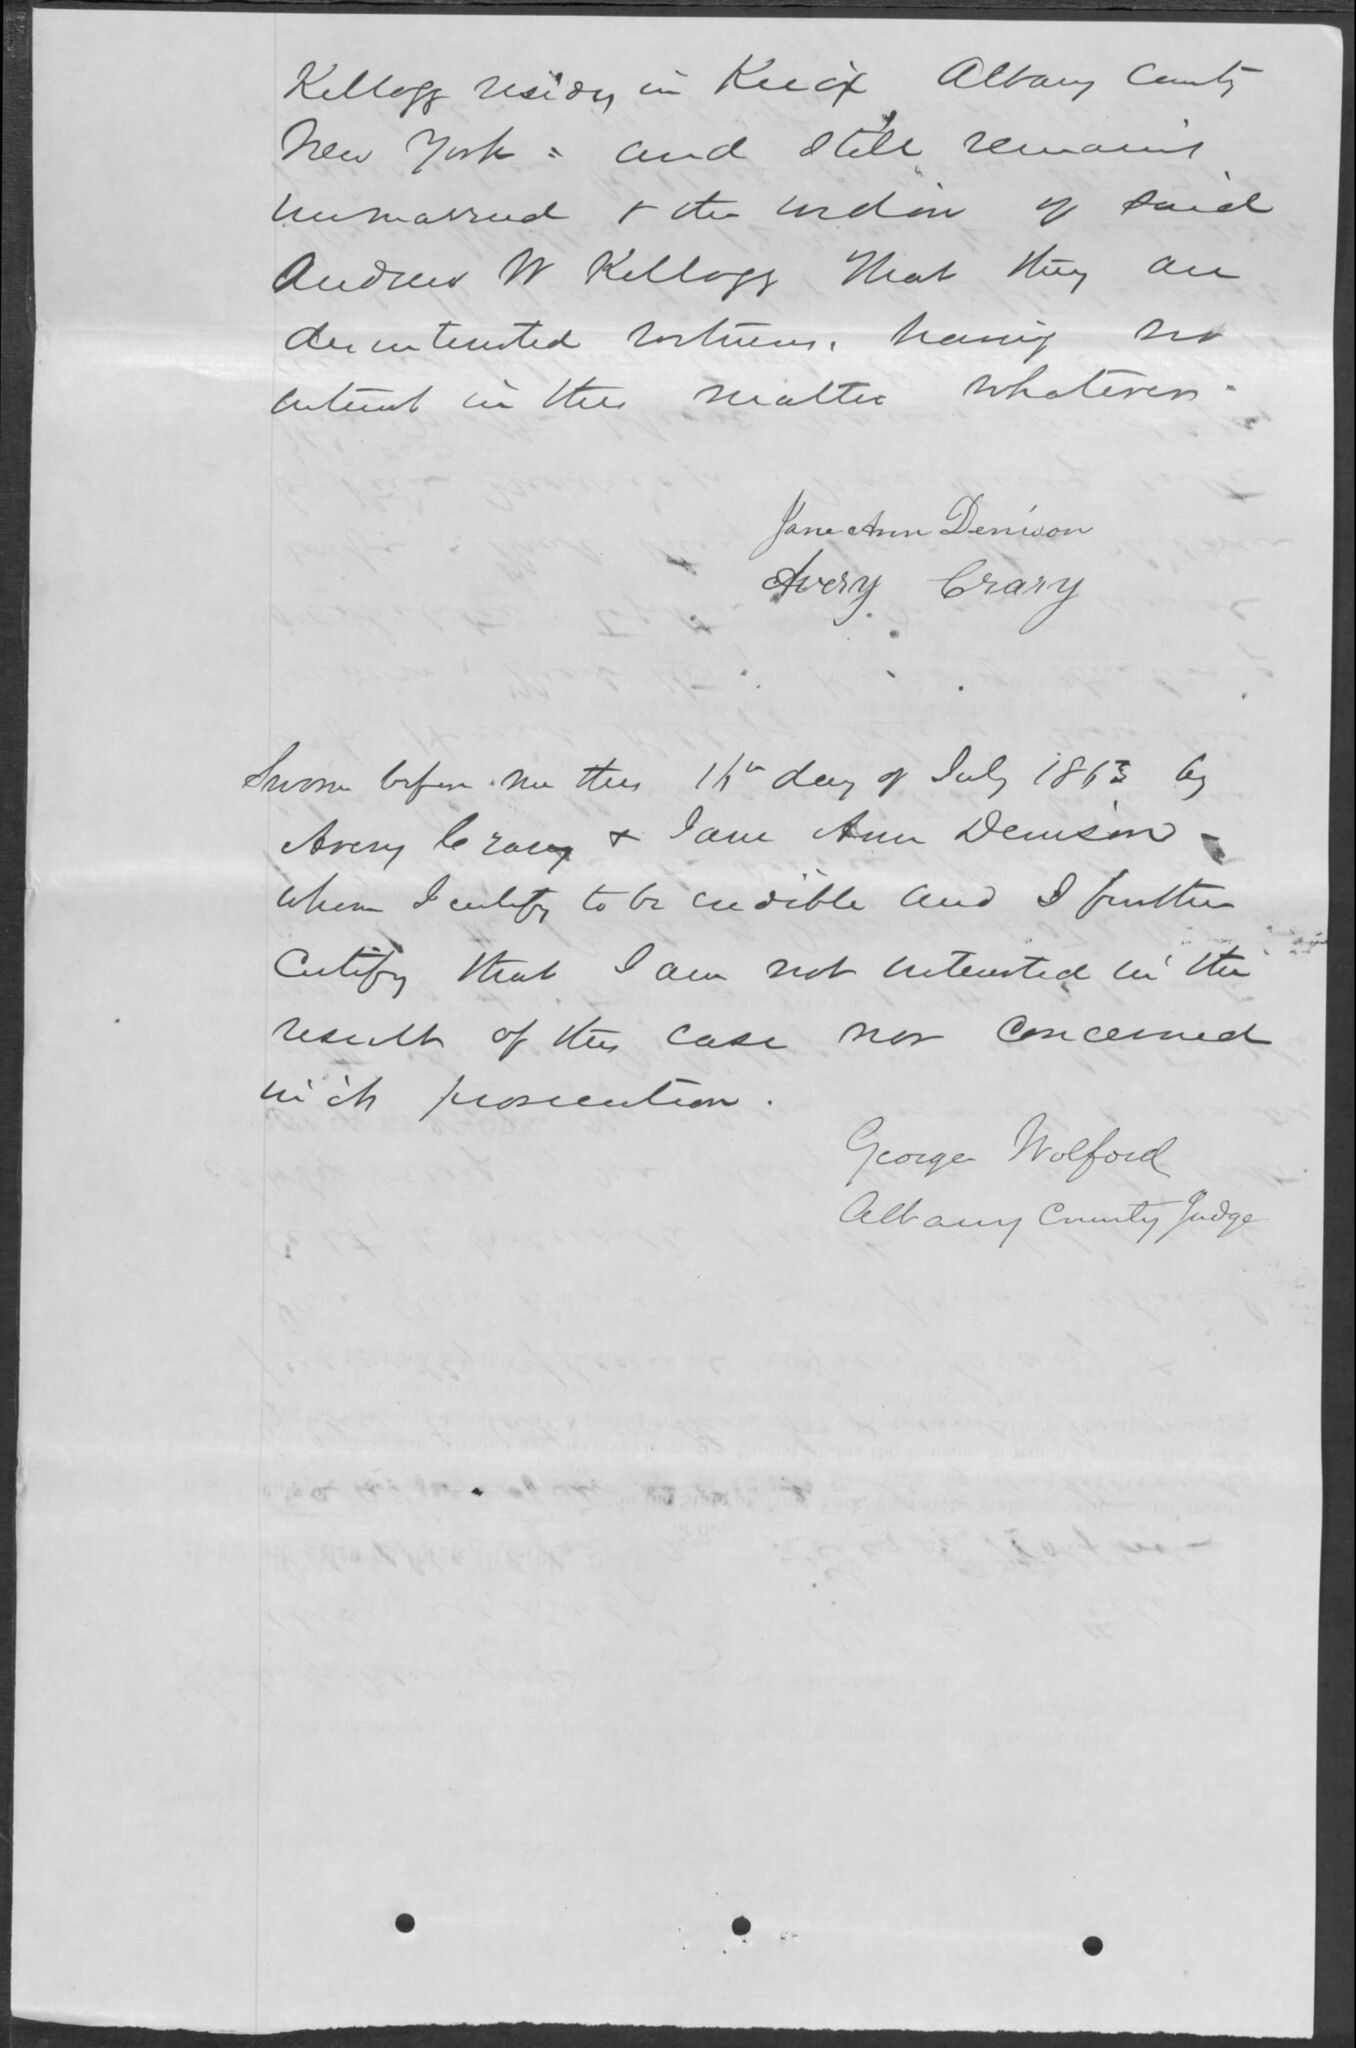 Kellogg resides in Knox, Albany County
New York = and still remains
unmarried & the widow of said
Andrew W Kellogg That they are
disinterested witnesses. having no
interest in this matter whatever.
Jane Ann Denison
Avery Crary
Sworn before me this day of July 1863 by
Avery Crary & Jane Ann Denison
whom I certify to be credible and I further
certify that I am not interested in the
result of this case nor concerned
in its prosecution.
George Wolford
Albany County Judge